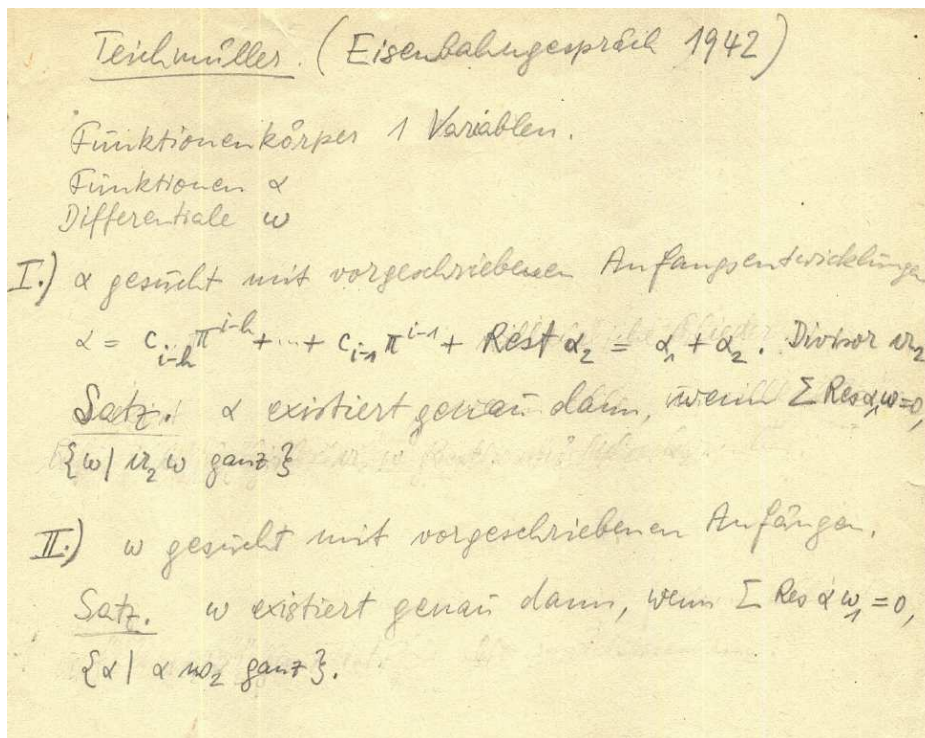 Teichmüller. (Eisenbahngespräch 1942)
Funktionenkörper 1 Variablen.
Funktionen α
Differentiale ω
I.) α gesucht mit vorgeschriebenen Anfangsentwicklungen
α = c_{i-h} π^{i-h} + ... + c_{i-1} π^{i-1} + Rest α₂ = α₁ + α₂. Divisor 𝔞₂
Satz. α existiert genau dann, wenn Σ Res α₁ω = 0,
{ω | 𝔞₂ ω ganz}
II.) ω gesucht mit vorgeschriebenen Anfängen.
Satz. ω existiert genau dann, wenn Σ Res α ω₁ = 0,
{α | α 𝔴₂ ganz}.